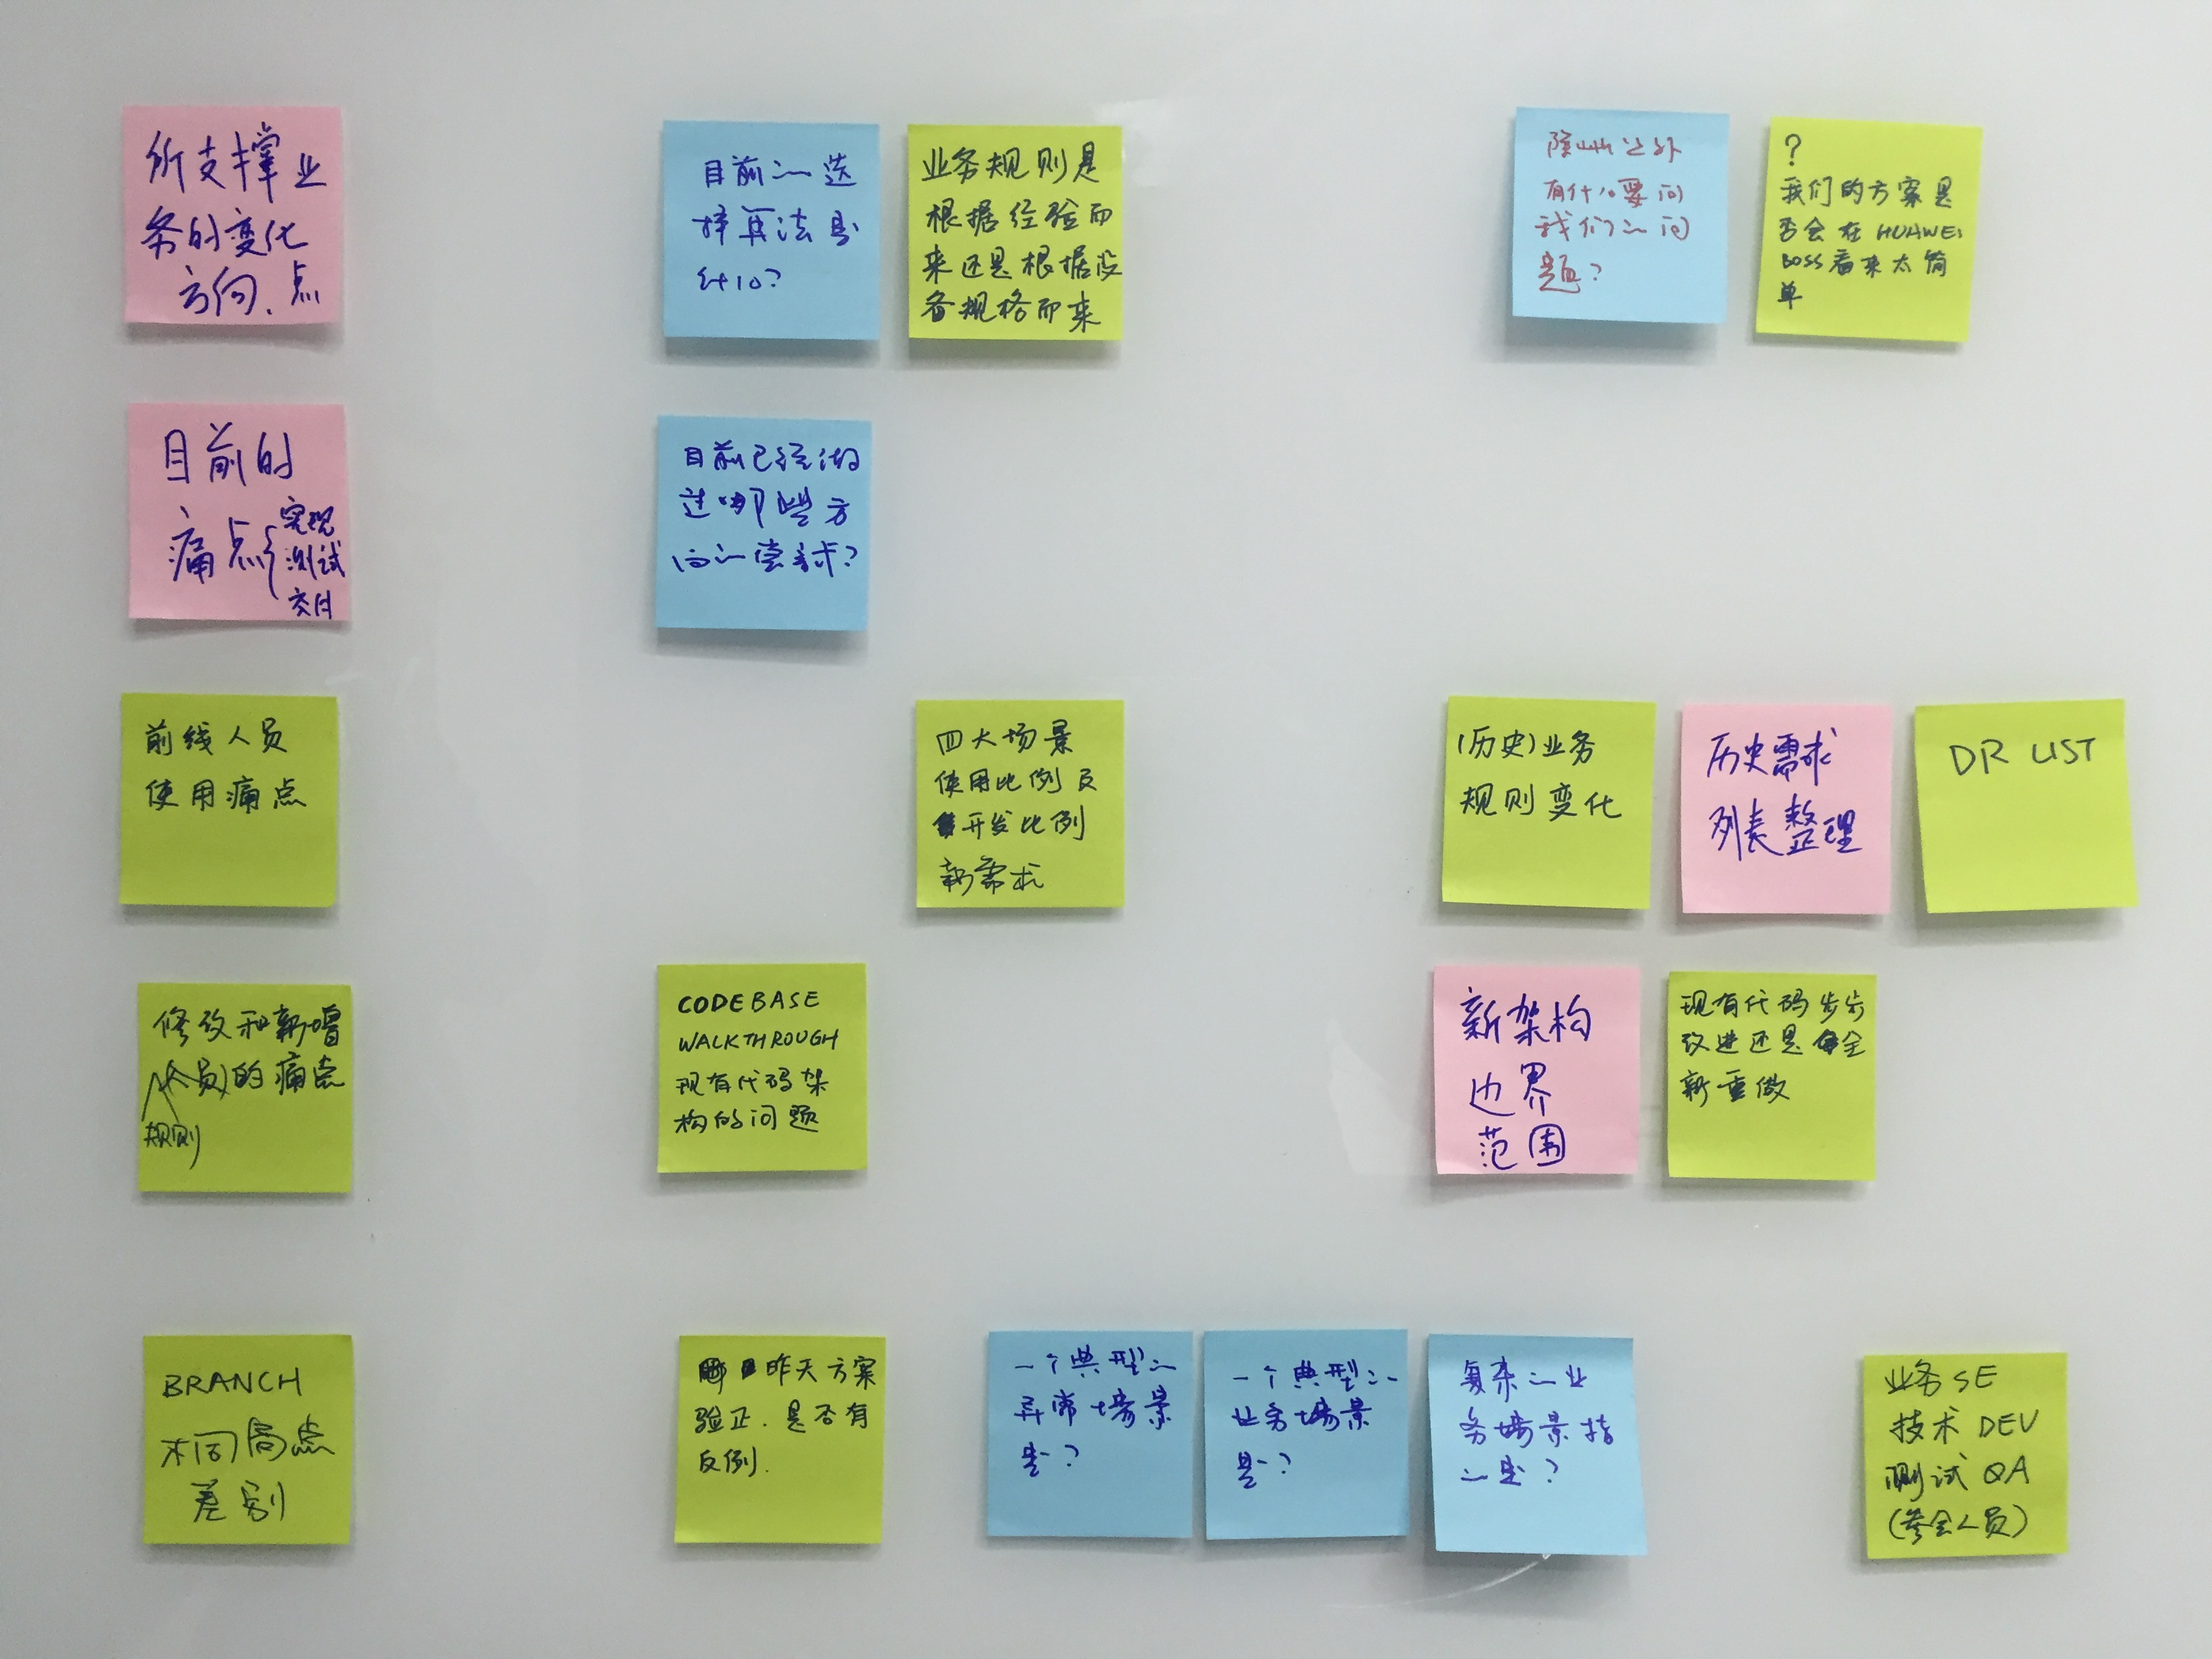 所支撑业
务的变化
方向、点
目前的选
择算法是
什么?
业务规则是
根据经验而
来还是根据设
备规格而来
除此之外
有什么要问
我们的问
题?
?
我们的方案是
否会在HUAWEI
BOSS看来太简
单
目前的
痛点
实现
测试
交付
目前已经做
过哪些方
向的尝试?
前线人员
使用痛点
四大场景
使用比例及
开发比例
新需求
(历史)业务
规则变化
历史需求
列表整理
DR LIST
修改和新增
(人员)的痛点
规则
CODEBASE
WALKTHROUGH
现有代码架
构的问题
新架构
边界
范围
现有代码步步
改进还是全
新重做
BRANCH
不同局点
差别
昨天方案
验正.是否有
反例.
一个典型的
异常场景
是?
一个典型的
业务场景
是?
复杂的业
务场景指
的是?
业务SE
技术DEV
测试QA
(参会人员)